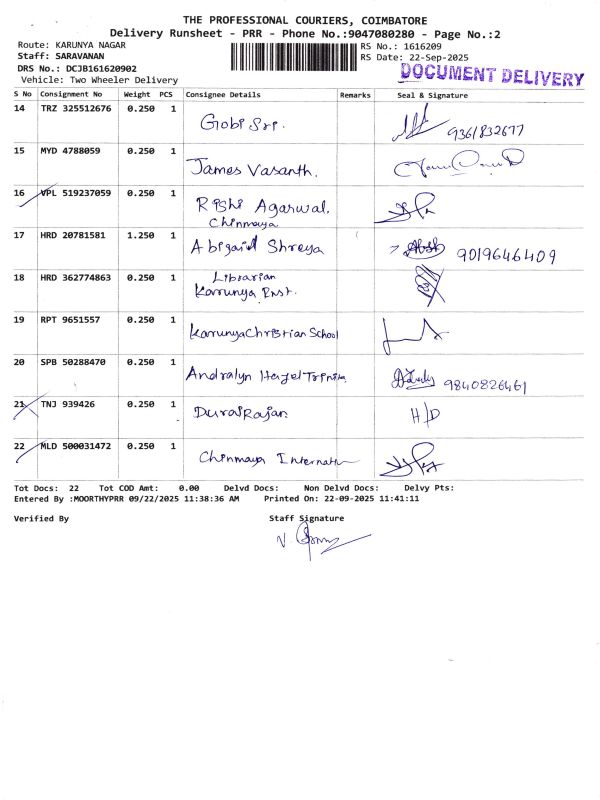 THE PROFESSIONAL COURIERS, COIMBATORE
Delivery Runsheet - PRR - Phone No.:9047080280 - Page No.:2
Route: KARUNYA NAGAR RS No.: 1616209
Staff: SARAVANAN RS Date: 22-Sep-2025
DRS No.: DCJB161620902 DOCUMENT DELIVERY
Vehicle: Two Wheeler Delivery
S No Consignment No Weight PCS Consignee Details Remarks Seal & Signature
14 TRZ 325512676 0.250 1 Gobi Sri. 9361832677
15 MYD 4788059 0.250 1 James Vasanth.
16 VPL 519237059 0.250 1 Rishi Agarwal.
Chinmaya
17 HRD 20781581 1.250 1 Abigail Shreya 9019646409
18 HRD 362774863 0.250 1 Librarian
Karunya Inst.
19 RPT 9651557 0.250 1 Karunya Christian School
20 SPB 50288470 0.250 1 Andralyn Hazel Trinita 9840826461
21 TNJ 939426 0.250 1 DuraiRajan H/D
22 MLD 500031472 0.250 1 Chinmaya
Tot Docs: 22 Tot COD Amt: 0.00 Delvd Docs: Non Delvd Docs: Delvy Pts:
Entered By :MOORTHYPRR 09/22/2025 11:38:36 AM Printed On: 22-09-2025 11:41:11
Verified By Staff Signature